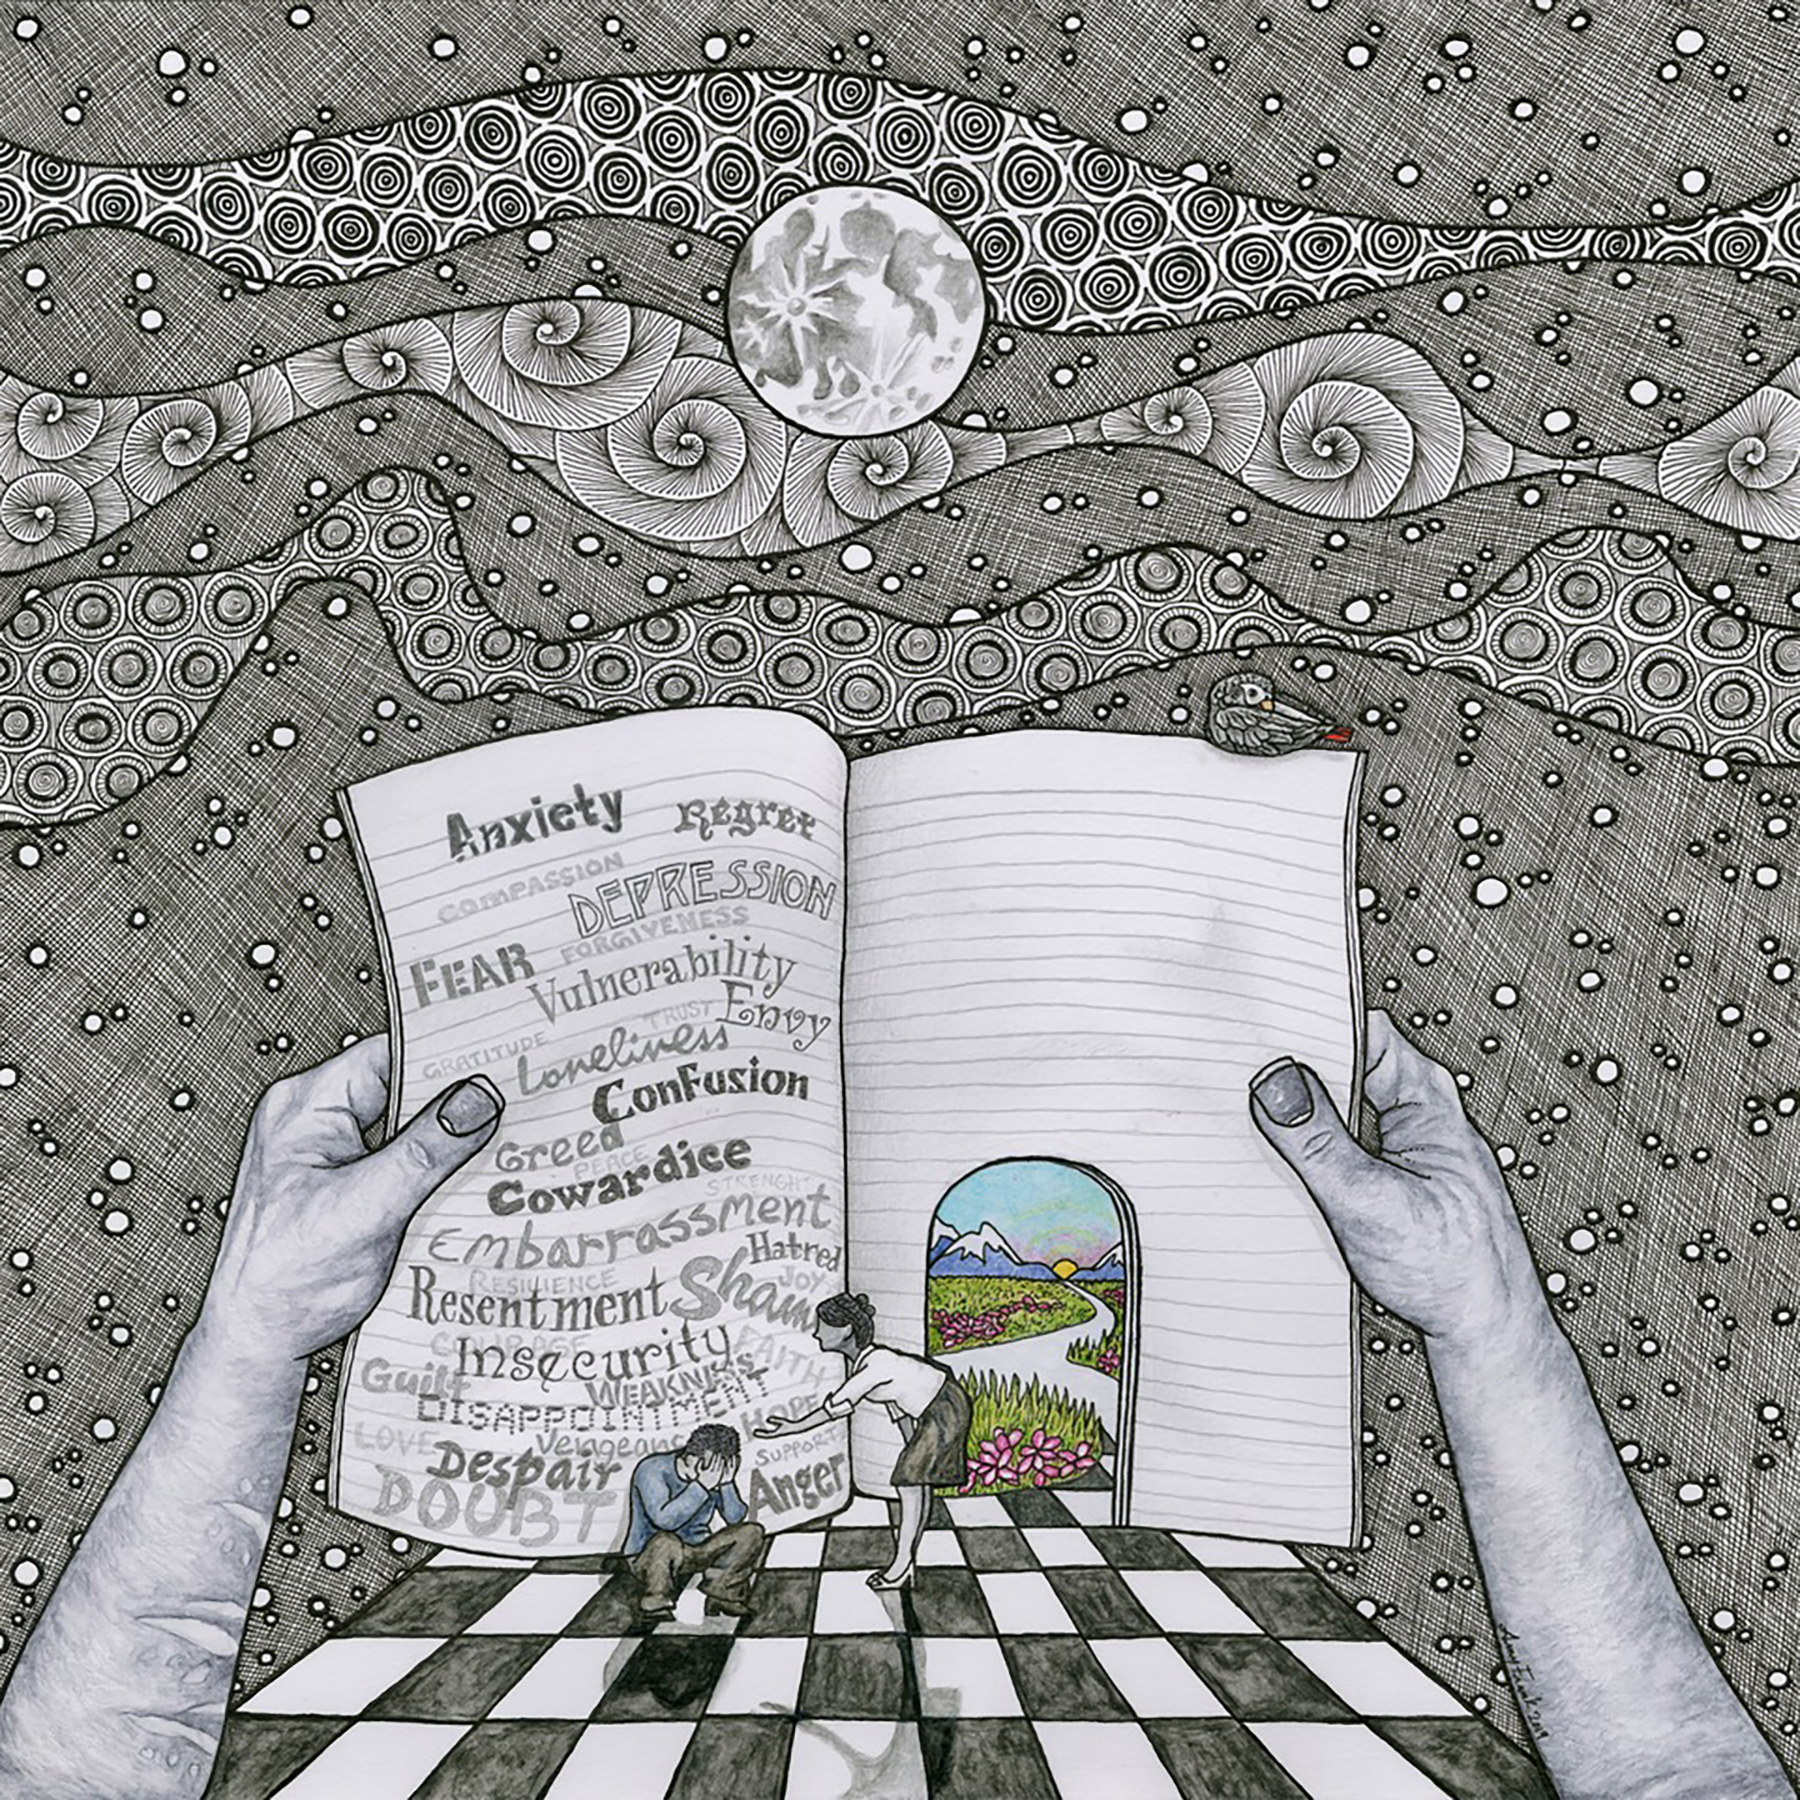 Anxiety Regret
COMPASSION
DEPRESSION
FORGIVENESS
FEAR
Vulnerability
TRUST Envy
GRATITUDE Loneliness
Confusion
Greed
PEACE
Cowardice
STRENGHT
Embarrassment
Hatred
RESILIENCE Shame JOY
Resentment
COURAGE
Insecurity FAITH
Guilt WEAKNESS
DISAPPOINTMENT HOPE
LOVE Vengeanc SUPPORT
Despair Anger
DOUBT